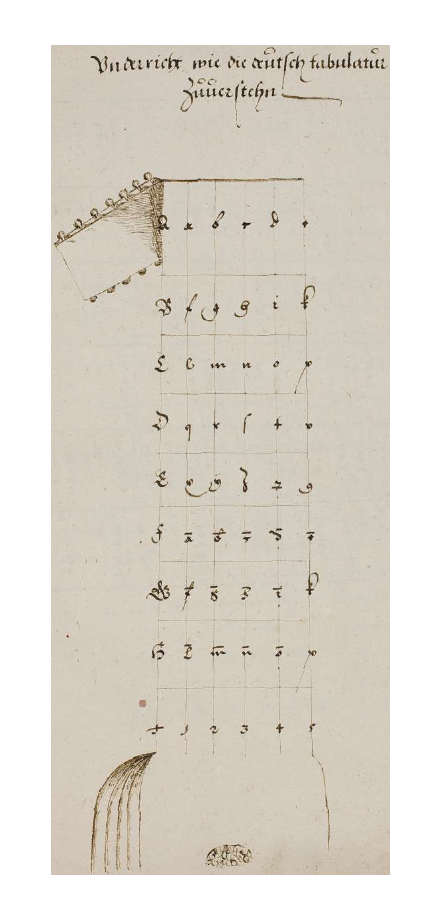 Vnderricht wie die deůtsch tabulatůr
Zůůerstehn
A a b c d e
B f g h i k
C l m n o p
D q r s t v
E x y z ꝛ 9
F ā b̄ c̄ d̄ ē
G f̄ ḡ h̄ ī k
H l̄ m̄ n̄ ō p
† 1 2 3 4 5